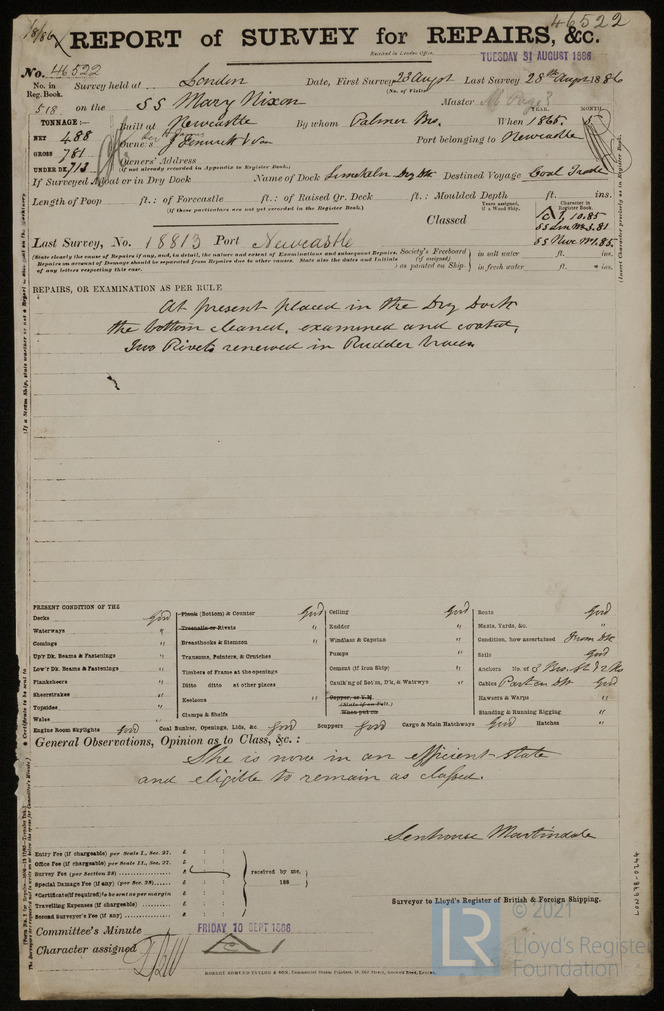 46522
REPORT of SURVEY for REPAIRS, &c.
Received in London Office,
TUESDAY 31 AUGUST 1886
No. 46522
No. in Reg. Book. 518
Survey held at London Date, First Survey 23 Augst Last Survey 28th Augst 1886
(No. of Visits)
on the SS Mary Nixon Master
TONNAGE:-
NET 488
GROSS 781
UNDER DK 713
Built at Newcastle By whom Palmer Bro. When 1865. 5
YEAR. MONTH.
Owners J Fenwick & Son Port belonging to Newcastle
Owners' Address
(If not already recorded in Appendix to Register Book.)
If Surveyed Afloat or in Dry Dock Name of Dock Limekeln Dry Dk Destined Voyage Coal Trade
Length of Poop ft.: of Forecastle ft.: of Raised Qr. Deck ft.: Moulded Depth ft. ins.
(If these particulars are not yet recorded in the Register Book.)
Classed
Years assigned, if a Wood Ship.
Character in Register Book.
10.85
Last Survey, No. 18813 Port Newcastle
(State clearly the cause of Repairs if any, and, in detail, the nature and extent of Examinations and subsequent Repairs. Repairs on account of Damage should be separated from Repairs due to other causes. State also the dates and Initials of any letters respecting this case.
Society's Freeboard (if assigned) as painted on Ship.
in salt water ft. ins.
in fresh water ft. ins.
REPAIRS, OR EXAMINATION AS PER RULE
At present placed in the Dry Dock
the bottom cleaned, examined and coated,
Two Rivets renewed in Rudder braces
PRESENT CONDITION OF THE
Decks Good
Waterways "
Comings "
Up'r Dk. Beams & Fastenings "
Low'r Dk. Beams & Fastenings "
Planksheers "
Sheerstrakes "
Topsides "
Wales "
Plank (Bottom) & Counter Good
Treenails or Rivets "
Breasthooks & Stemson "
Transoms, Pointers, & Crutches
Timbers of Frame at the openings
Ditto ditto at other places
Keelsons "
Clamps & Shelfs
Ceiling Good
Rudder "
Windlass & Capstan "
Pumps "
Cement (if Iron Ship) "
Caulk'ng of Bot'm, D'k, & Watrwys "
Copper, or Y.M.
(State if on Felt)
When put on
Boats Good
Masts, Yards, &c. "
Condition, how ascertained From Dk
Sails Good
Anchors No. of 3 Bro. St & 2 Ke
Cables Part on Dk Good
Hawsers & Warps "
Standing & Running Rigging "
Engine Room Skylights Good Coal Bunker, Openings, Lids, &c. Good Scuppers Good Cargo & Main Hatchways Good Hatches "
General Observations, Opinion as to Class, &c.:
She is now in an efficient state
and eligible to remain as classed.
Senhouse Martindale
Entry Fee (if chargeable) per Scale I., Sec. 27. £ : :
Office Fee (if chargeable) per Scale II., Sec. 27. £ : :
Survey Fee (per Section 28) £
Special Damage Fee (if any) (per Sec. 28) £
*Certificate (if required) to be sent as per margin
Travelling Expenses (if chargeable) £
Second Surveyor's Fee (if any) £
received by me,
188
Surveyor to Lloyd's Register of British & Foreign Shipping.
Committee's Minute FRIDAY 10 SEPT 1886
Character assigned
ROBERT EDMUND TAYLOR & SON,
LON678-0244
LR
© 2021
Lloyd's Register
Foundation